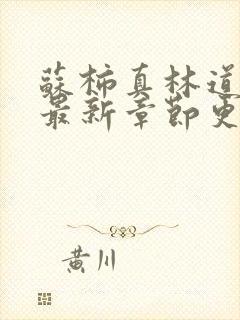 蘇柿真林道
最新章節更
黄川